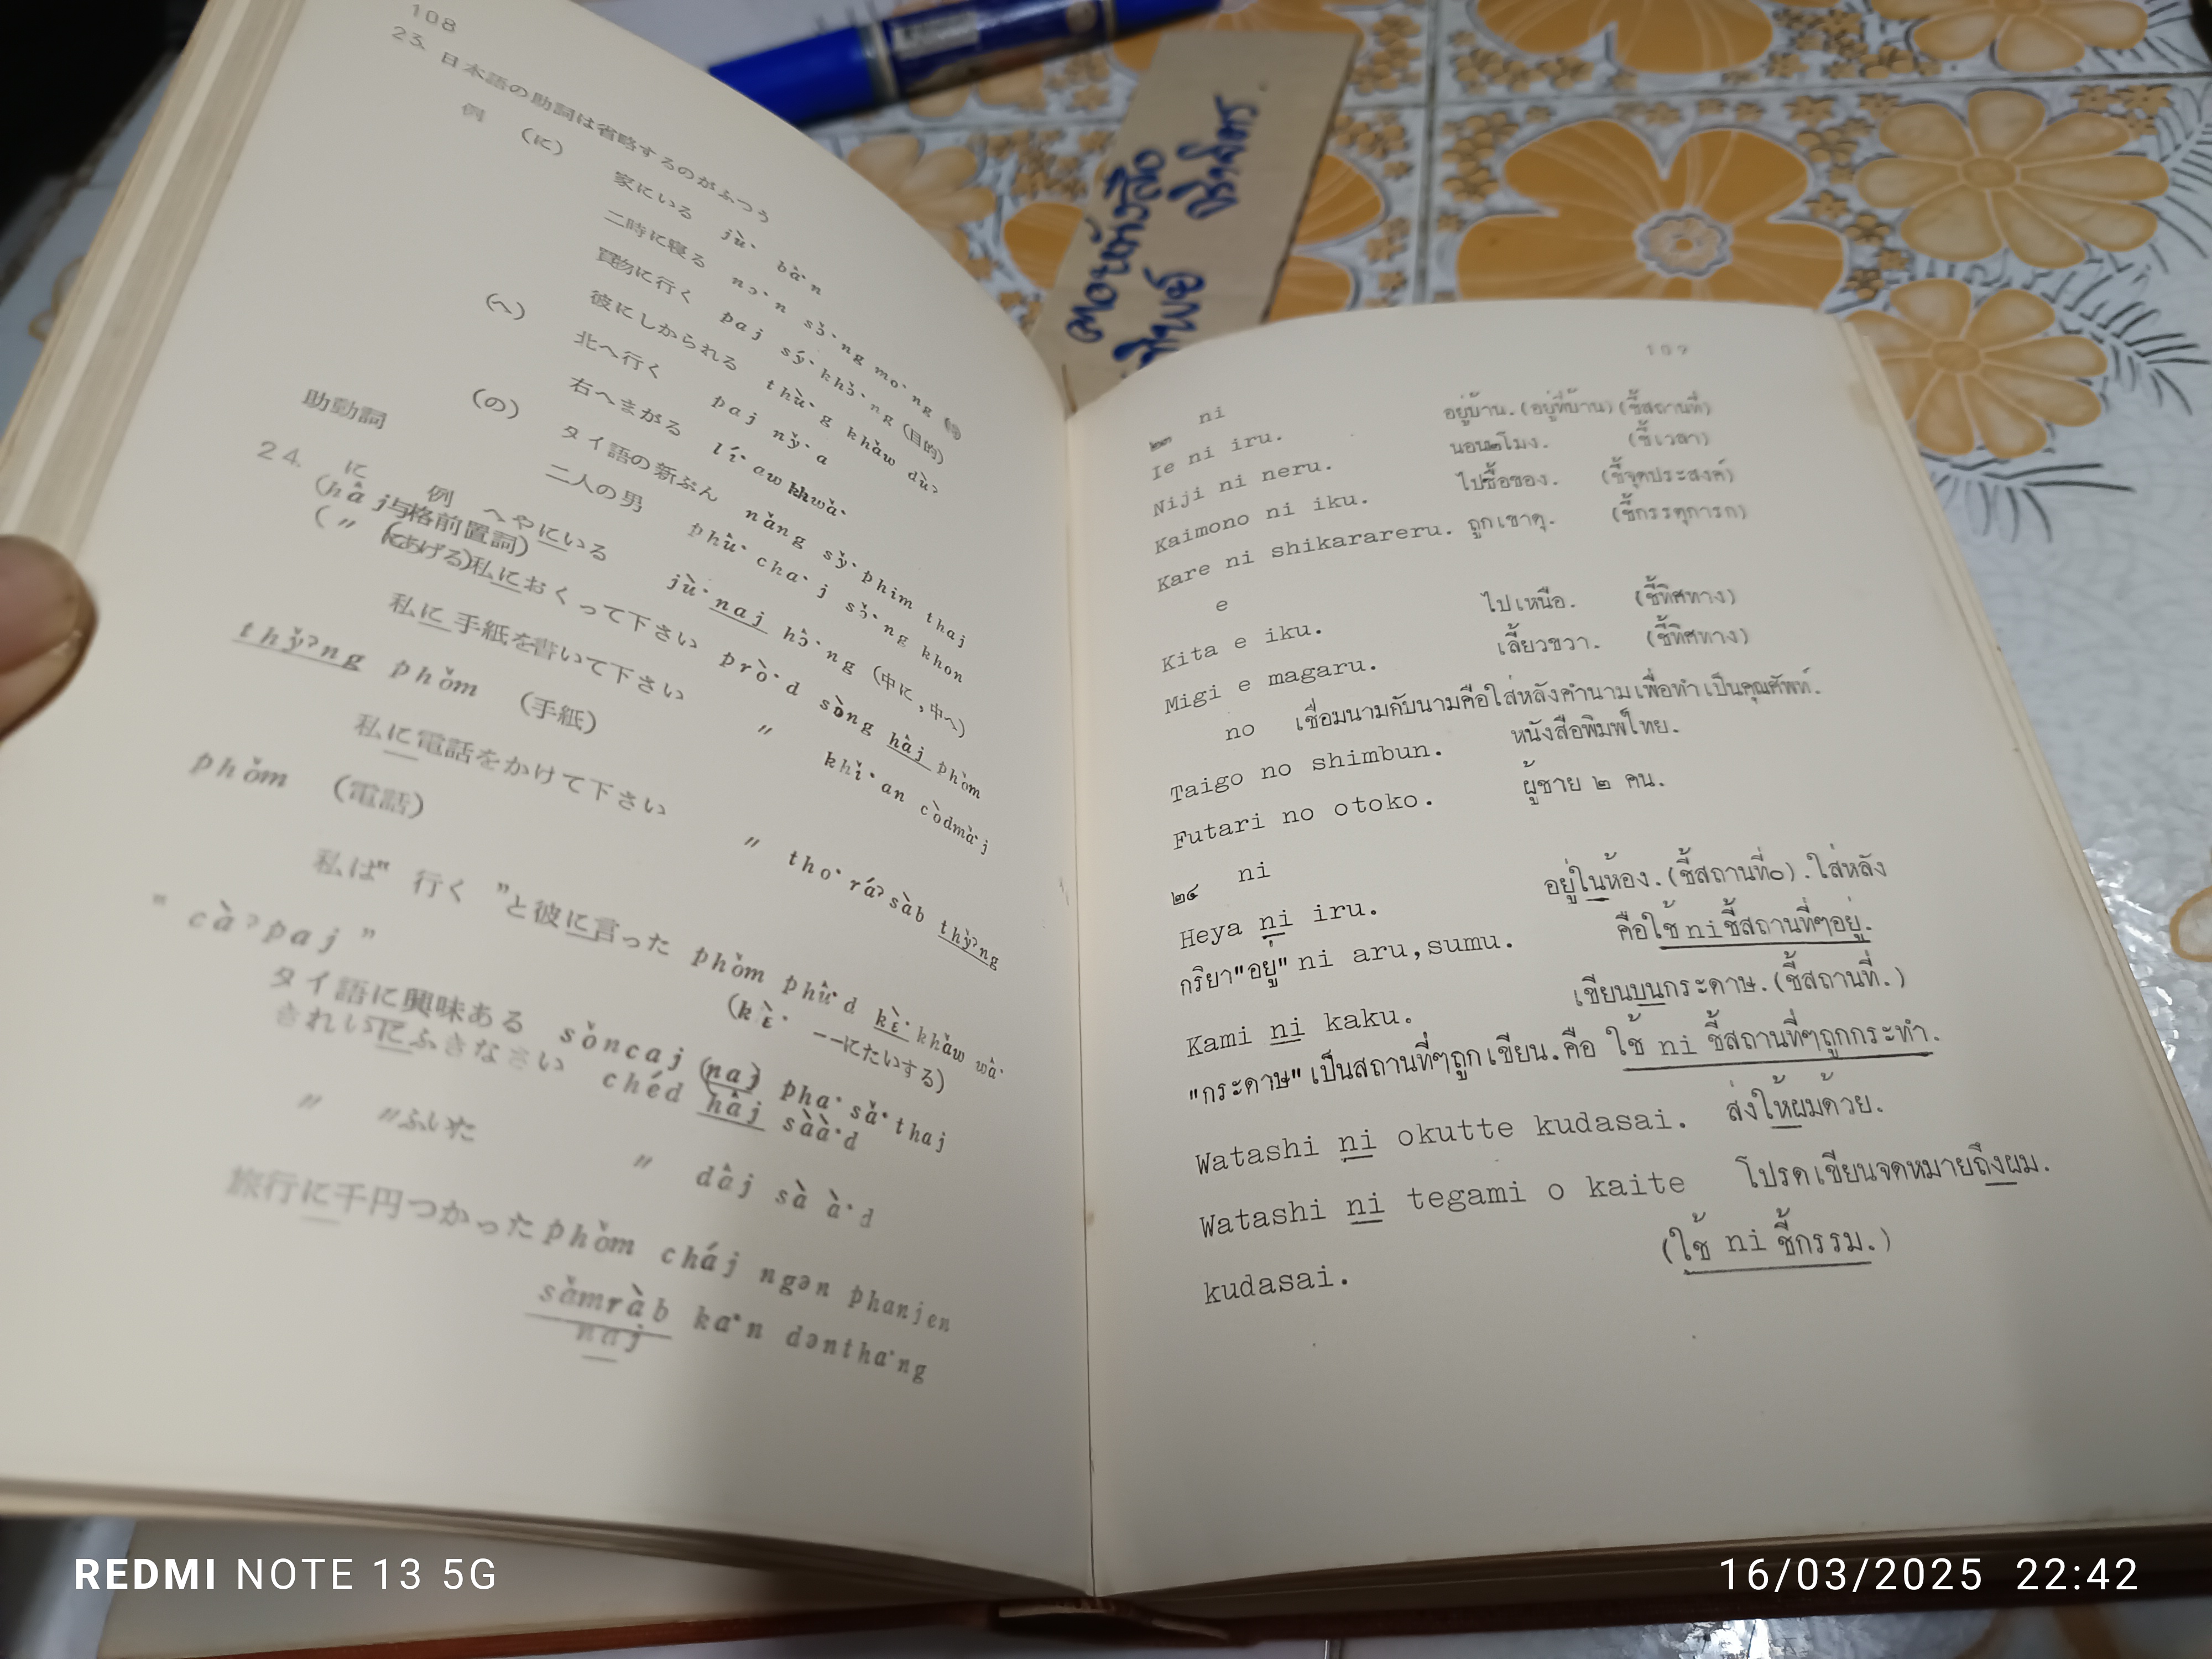 108
23. 日本語の助詞は省略するのがふつう
例 (に)
家にいる jù· bâ·n
二時に寝る nɔ·n sɔ̌·ng mo·ng
買物に行く paj sý·khɔ̌·ng (目的)
彼にしかられる thù·g khǎw dùʔ
(へ)
北へ行く paj nỳ·a
右へまがる lí·aw khwǎ·
(の)
タイ語の新ぶん nǎng sy̌·phim thaj
二人の男 phû·cha·j sɔ̌·ng khon
助動詞
24. に 例 へやにいる jù·naj hɔ̂·ng (中に,中へ)
(hâj与格前置詞)
(〃 (にあげる)私におくって下さい prò·d sòng hâj phǒm
私に手紙を書いて下さい 〃 khǐ·an còdmǎ·j
thy̌ʔng phǒm (手紙)
私に電話をかけて下さい 〃 tho·ráʔsàb thy̌ʔng
phǒm (電話)
私は" 行く "と彼に言った phǒm phû·d kɛ̀·khǎw wâ·
" càʔpaj " (kɛ̀· ーーにたいする)
タイ語に興味ある sǒncaj (naj) pha·sǎ·thaj
きれいにふきなさい chéd hâj sàà·d
〃 〃ふいた 〃 dâj sà à·d
旅行に千円つかった phǒm cháj ngən phanjen
sǎmràb ka·n dəntha·ng
naj
ตอบหนังสือ
109
๒๓ ni
Ie ni iru. อยู่บ้าน.(อยู่ที่บ้าน)(ชี้สถานที่)
Niji ni neru. นอน๒โมง. (ชี้เวลา)
Kaimono ni iku. ไปซื้อของ. (ชี้จุดประสงค์)
Kare ni shikarareru. ถูกเขาดุ. (ชี้กรรตุการก)
e
Kita e iku. ไปเหนือ. (ชี้ทิศทาง)
Migi e magaru. เลี้ยวขวา. (ชี้ทิศทาง)
no เชื่อมนามกับนามคือใส่หลังคำนามเพื่อทำเป็นคุณศัพท์.
Taigo no shimbun. หนังสือพิมพ์ไทย.
Futari no otoko. ผู้ชาย ๒ คน.
๒๔ ni
Heya ni iru. อยู่ในห้อง.(ชี้สถานที่๐).ใส่หลัง
กริยา"อยู่" ni aru,sumu. คือใช้ niชี้สถานที่ๆอยู่.
Kami ni kaku. เขียนบนกระดาษ.(ชี้สถานที่.)
"กระดาษ" เป็นสถานที่ๆถูกเขียน.คือ ใช้ ni ชี้สถานที่ๆถูกกระทำ.
Watashi ni okutte kudasai. ส่งให้ผมด้วย.
Watashi ni tegami o kaite โปรดเขียนจดหมายถึงผม.
kudasai. (ใช้ ni ชี้กรรม.)
REDMI NOTE 13 5G
16/03/2025 22:42